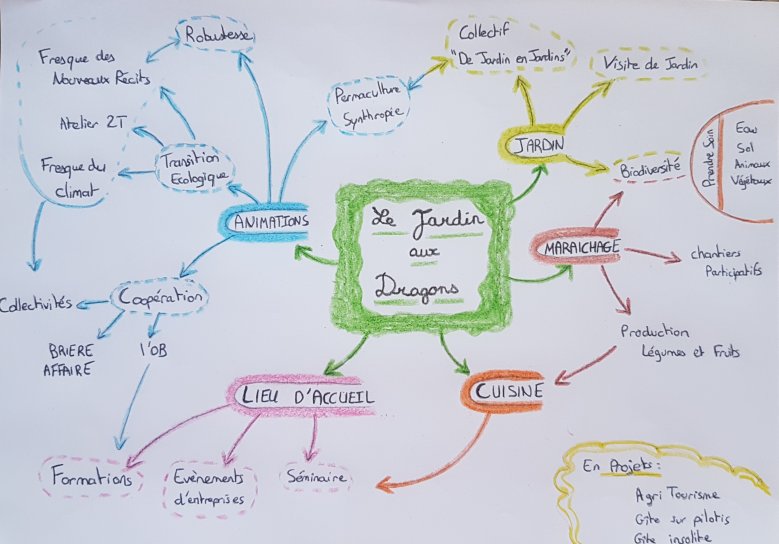 Le Jardin
aux
Dragons
ANIMATIONS
Robustesse
Fresque des
Nouveaux Récits
Atelier 2T
Fresque du
Climat
Transition
Ecologique
Permaculture
Synthropie
Coopération
Collectivités
BRIERE
AFFAIRE
l'OB
JARDIN
Collectif
"De Jardin en Jardins"
Visite de Jardin
Biodiversité
Prendre Soin
Eau
Sol
Animaux
Végétaux
MARAICHAGE
chantiers
Participatifs
Production
Légumes et Fruits
CUISINE
LIEU D'ACCUEIL
Formations
Evènements
d'entreprises
Séminaire
En Projets :
Agri Tourisme
Gîte sur pilotis
Gîte insolite